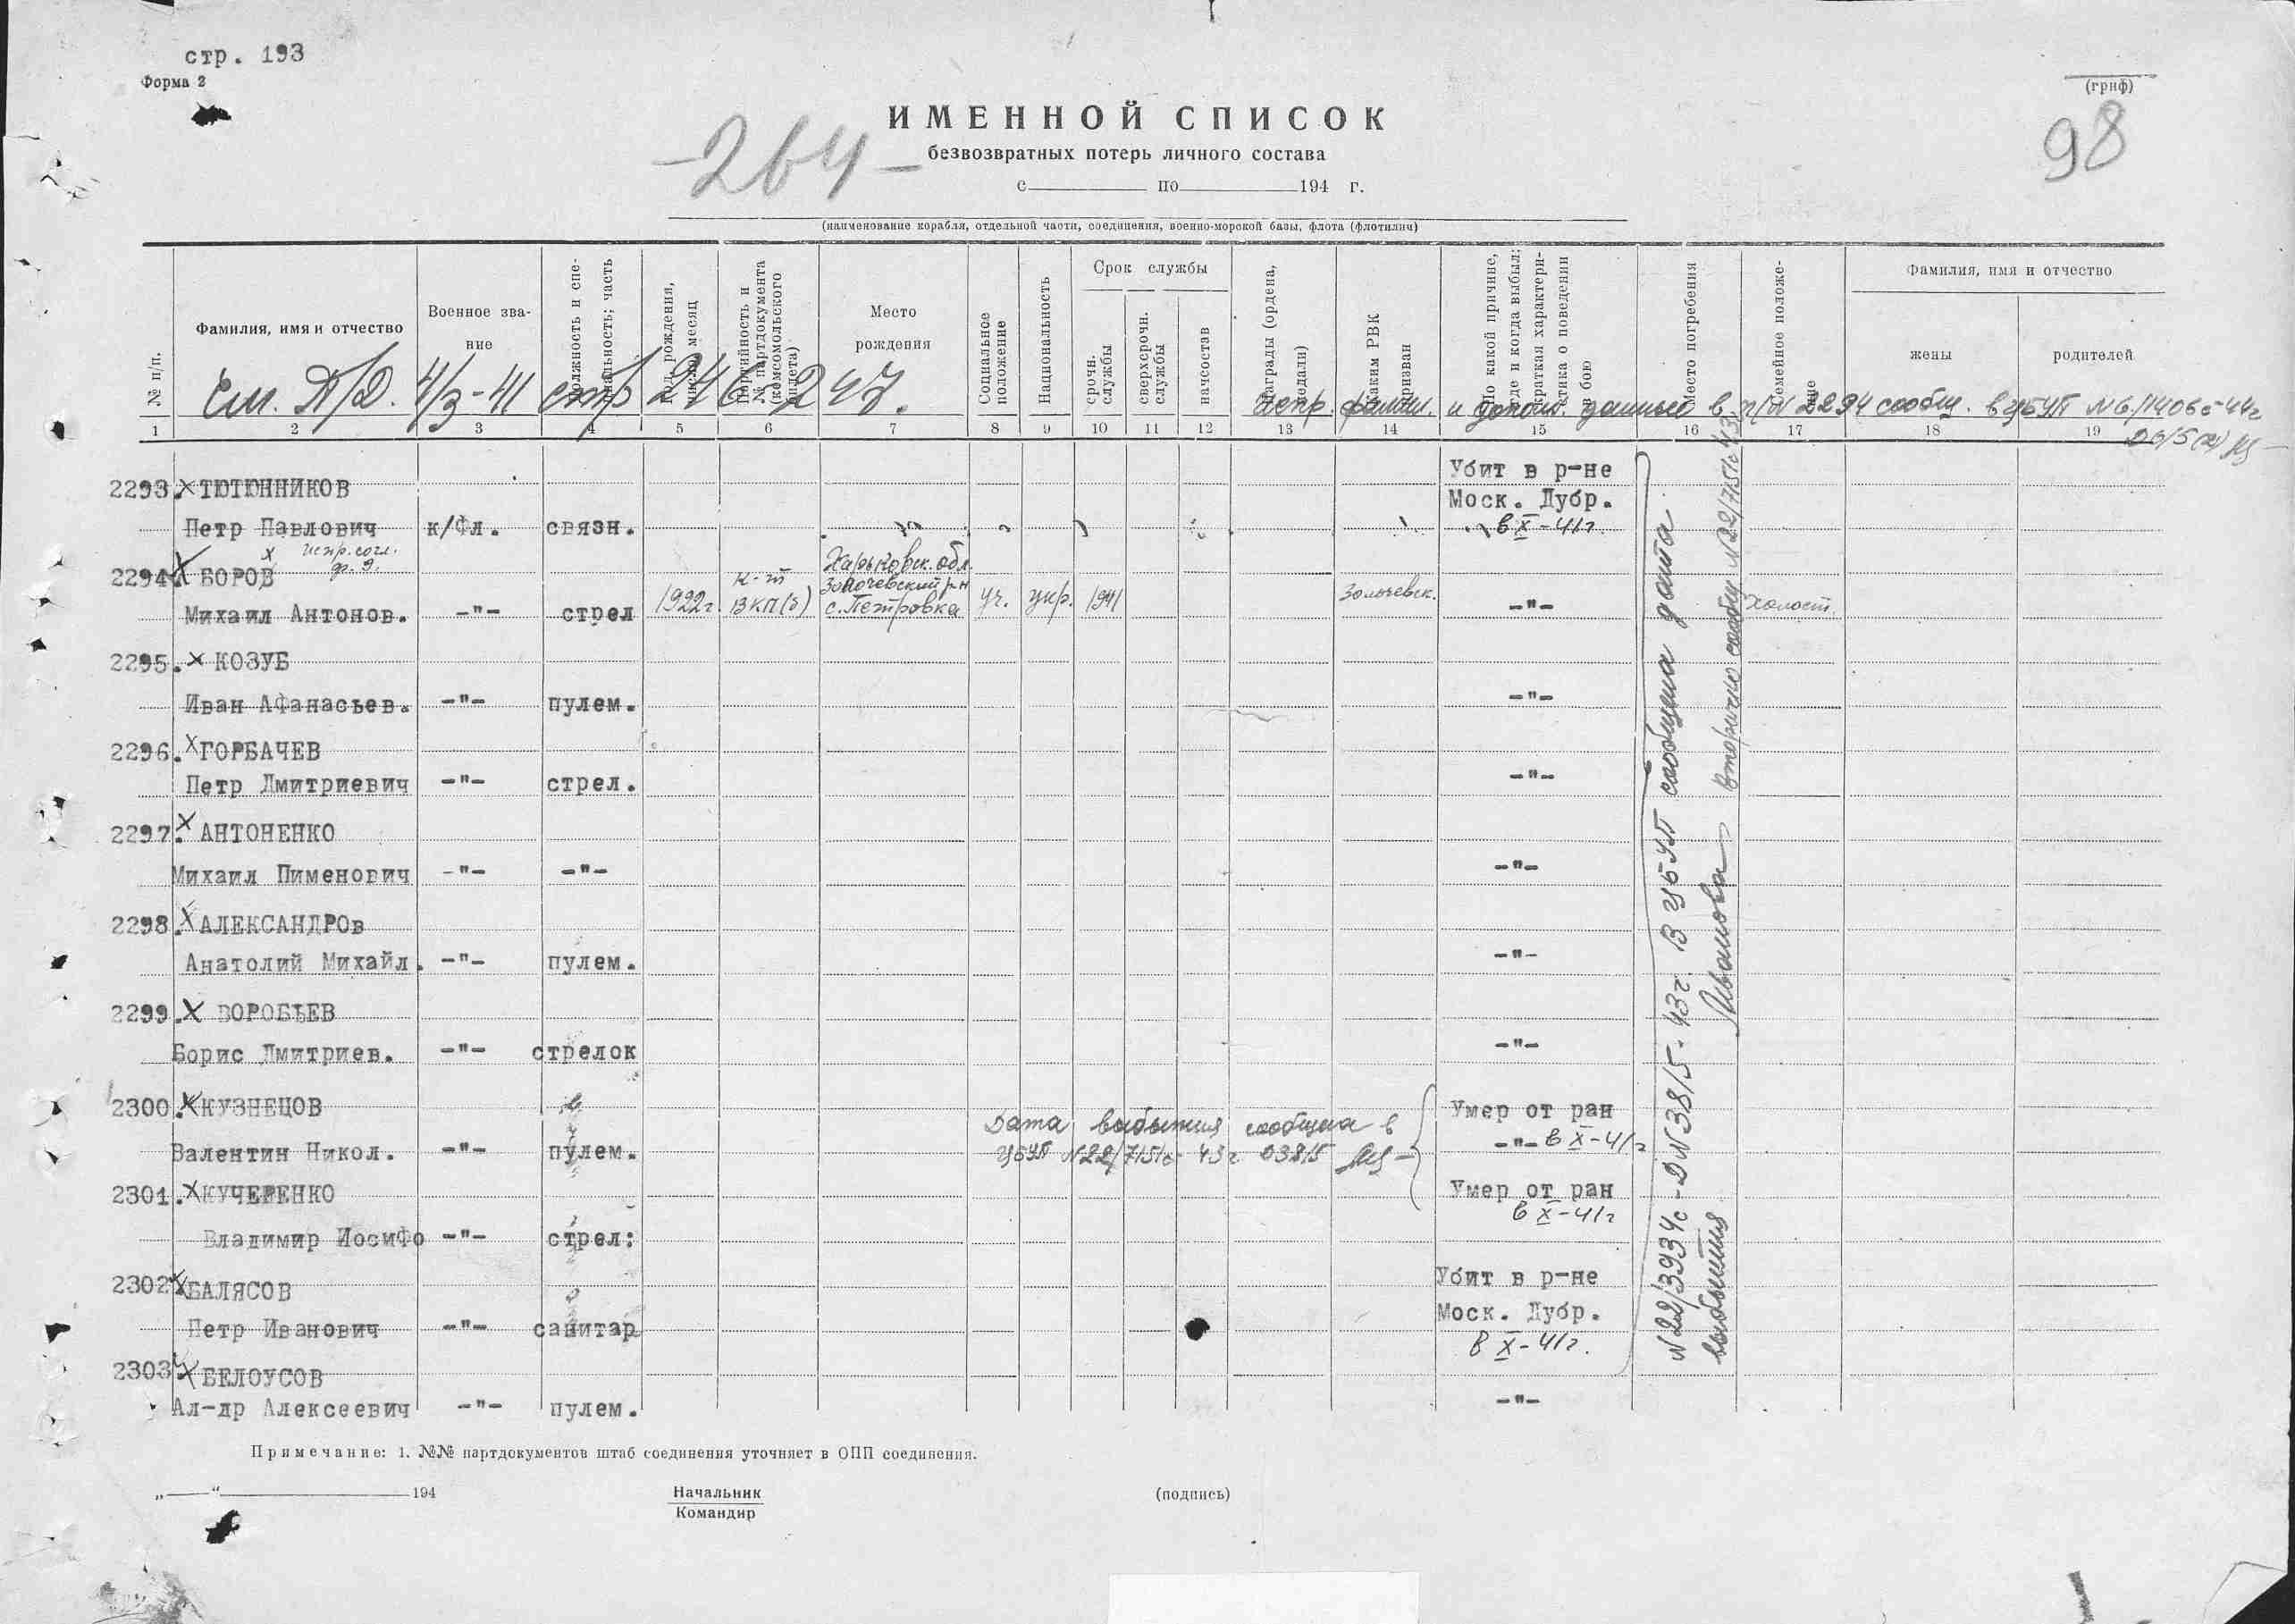 стр. 193
Форма 2
(гриф)
98
ИМЕННОЙ СПИСОК
-264-
безвозвратных потерь личного состава
с по 194 г.
(наименование корабля, отдельной части, соединения, военно-морской базы, флота (флотилии)
№ п/п.
Фамилия, имя и отчество
Военное зва-
ние
Должность и спе-
циальность; часть
Год рождения,
число, месяц
Партийность и
№ партдокумента
(комсомольского
билета)
Место
рождения
Социальное
положение
Национальность
Срок службы
срочн.
службы
сверхсрочн.
службы
начсостав
Награды (ордена,
медали)
Каким РВК
призван
По какой причине,
где и когда выбыл;
краткая характери-
стика о поведении
в бою
Место погребения
Семейное положе-
ние
Фамилия, имя и отчество
жены
родителей
См. Л/Д. 4/3-41 стр 246-247.
Испр. фамил. и дополн. данные в п/№ 2294 сообщ. в ЦБУП №6/1406с-44г
1 2 3 4 5 6 7 8 9 10 11 12 13 14 15 16 17 18 19
2293. х ТЮТЮННИКОВ Убит в р-не
Моск. Дубр.
Петр Павлович к/Фл. связн. в X-41г
х испр. согл.
ф. 9.
2294. х БОРОВ
Михаил Антонов. -"- стрел 1922г. к-т ВКП(б) Харьковск. обл. Золочевский р-н с. Петровка уч. укр. 1941 Золочевск. -"- Холост.
2295. х КОЗУБ
Иван Афанасьев. -"- пулем. -"-
2296. х ГОРБАЧЕВ
Петр Дмитриевич -"- стрел. -"-
2297. х АНТОНЕНКО
Михаил Пименович -"- -"- -"-
2298. х АЛЕКСАНДРОв
Анатолий Михайл. -"- пулем. -"-
2299. х ВОРОБЬЕВ
Борис Дмитриев. -"- стрелок -"-
2300. х КУЗНЕЦОВ Умер от ран
Дата выбытия сообщена в
Валентин Никол. -"- пулем. -"- в X-41г
ЦБУП №22/7151с-43г 03815
2301. х КУЧЕРЕНКО Умер от ран
в X-41г
Владимир Иосифо -"- стрел:
2302 х БАЛЯСОВ Убит в р-не
Моск. Дубр.
Петр Иванович -"- санитар
в X-41г.
2303 х БЕЛОУСОВ
Ал-др Алексеевич -"- пулем. -"-
№22/3934с-D№3815-43г. В ЦБУП сообщена дата
выбытия Иванова
вторично сообщ №22/7151с 43г
Примечание: 1. №№ партдокументов штаб соединения уточняет в ОПП соединения.
„ “ 194
Начальник
Командир
(подпись)